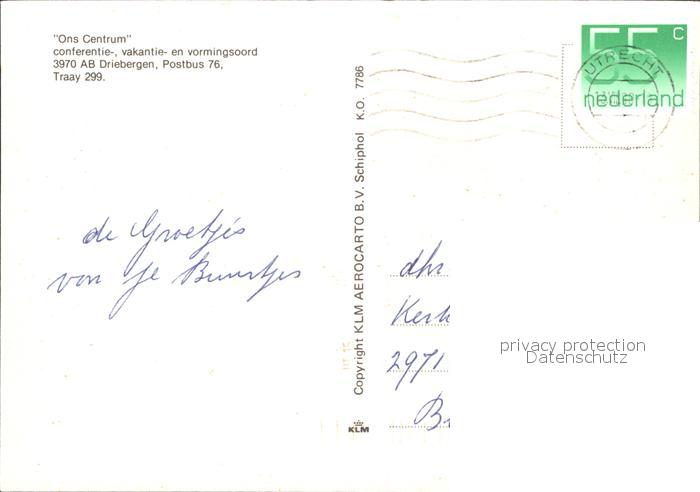 "Ons Centrum"
conferentie-, vakantie- en vormingsoord
3970 AB Driebergen, Postbus 76,
Traay 299.
55 c
nederland
UTRECHT
Copyright KLM AEROCARTO B.V. Schiphol K.O. 7786
KLM
de Groetjes
van je Buurtjes
dhr
Kerk
2971
privacy protection
Datenschutz